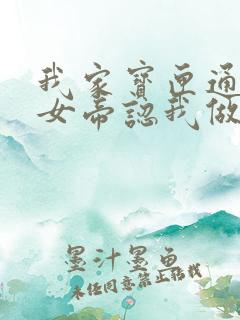 我家寶匣通
女帝認我做
墨汁墨魚
未经同意禁止转载